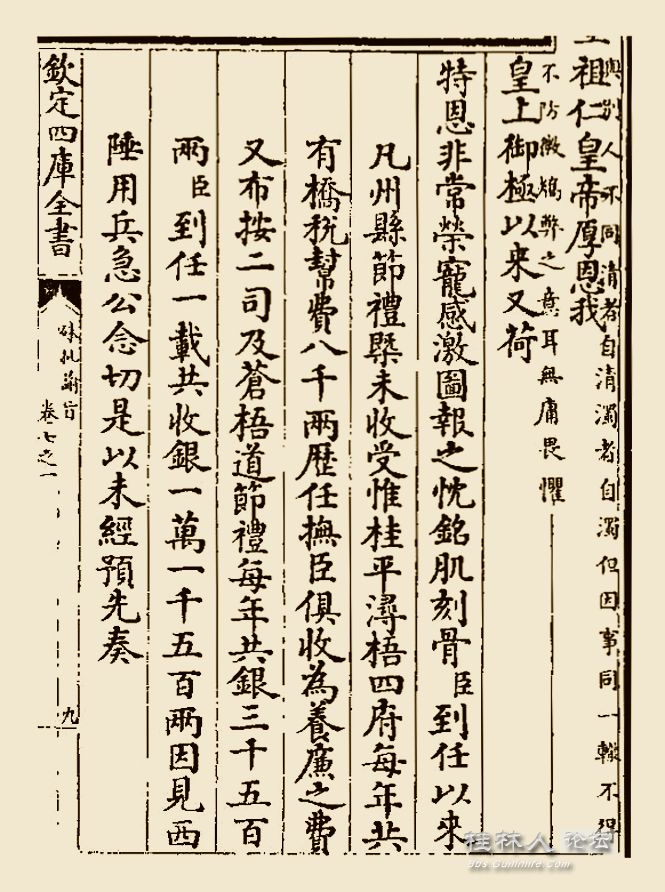 與別人不同清者自清濁者自濁但因事同一轍不得
祖仁皇帝厚恩我
不防微弊之意耳無庸畏懼
皇上御極以来又荷
特恩非常榮寵感激圖報之忱銘肌刻骨臣到任以来
凡州縣節禮槩未收受惟桂平潯梧四府每年共
有橋稅幫費八千兩歷任撫臣俱收為養廉之費
又布按二司及蒼梧道節禮每年共銀三千五百
兩臣到任一載共收銀一萬一千五百兩因見西
陲用兵急公念切是以未經預先奏
欽定四庫全書
硃批諭旨
卷七之一
九
桂林人 论坛
bbs.Guilinlife.com